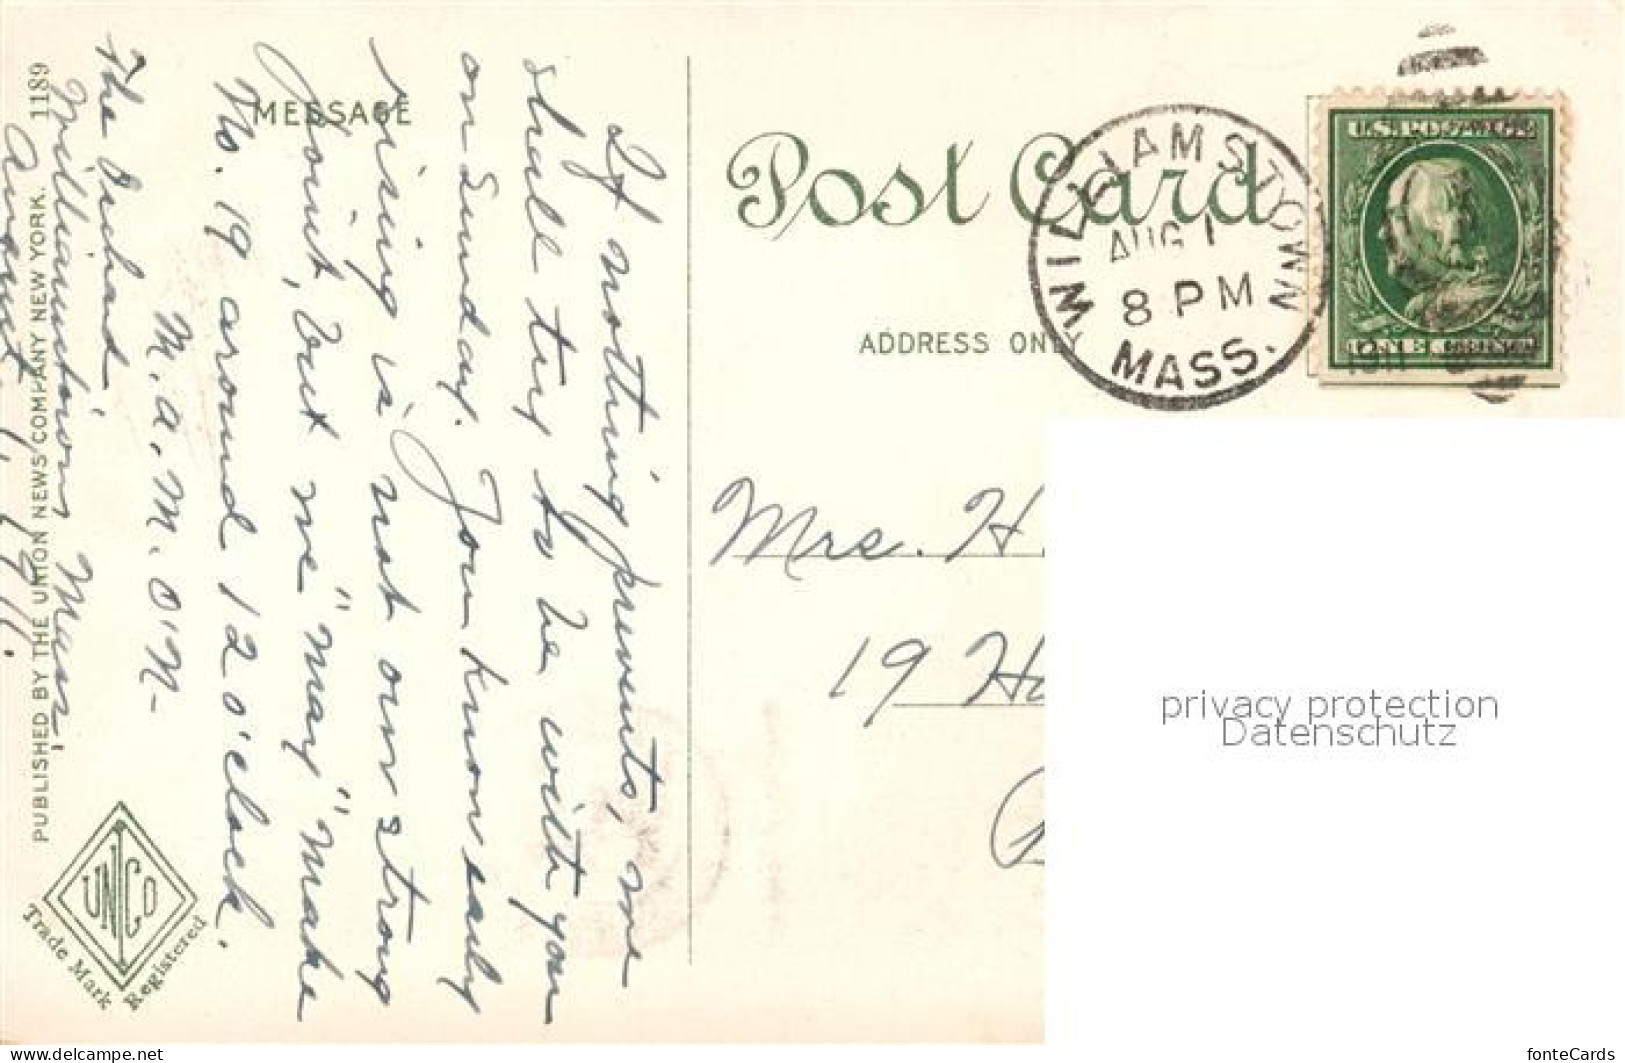 If nothing prevents, we
shall try to be with you
on Sunday. You know early
rising is not our strong
point, but we "may" make
No. 19 around 12 o'clock.
M. A. M. O'N-
The Orchard
Williamstown Mass,
August
MESSAGE
1189
PUBLISHED BY THE UNION NEWS COMPANY NEW YORK.
UNCO
Trade Mark Registered
Post Card
ADDRESS ONLY
WILLIAMSTOWN
AUG 1
8 PM
MASS.
1911
U.S. POSTAGE
Mrs. H.
19
privacy protection
Datenschutz
http://www.delcampe.net
fonteCards